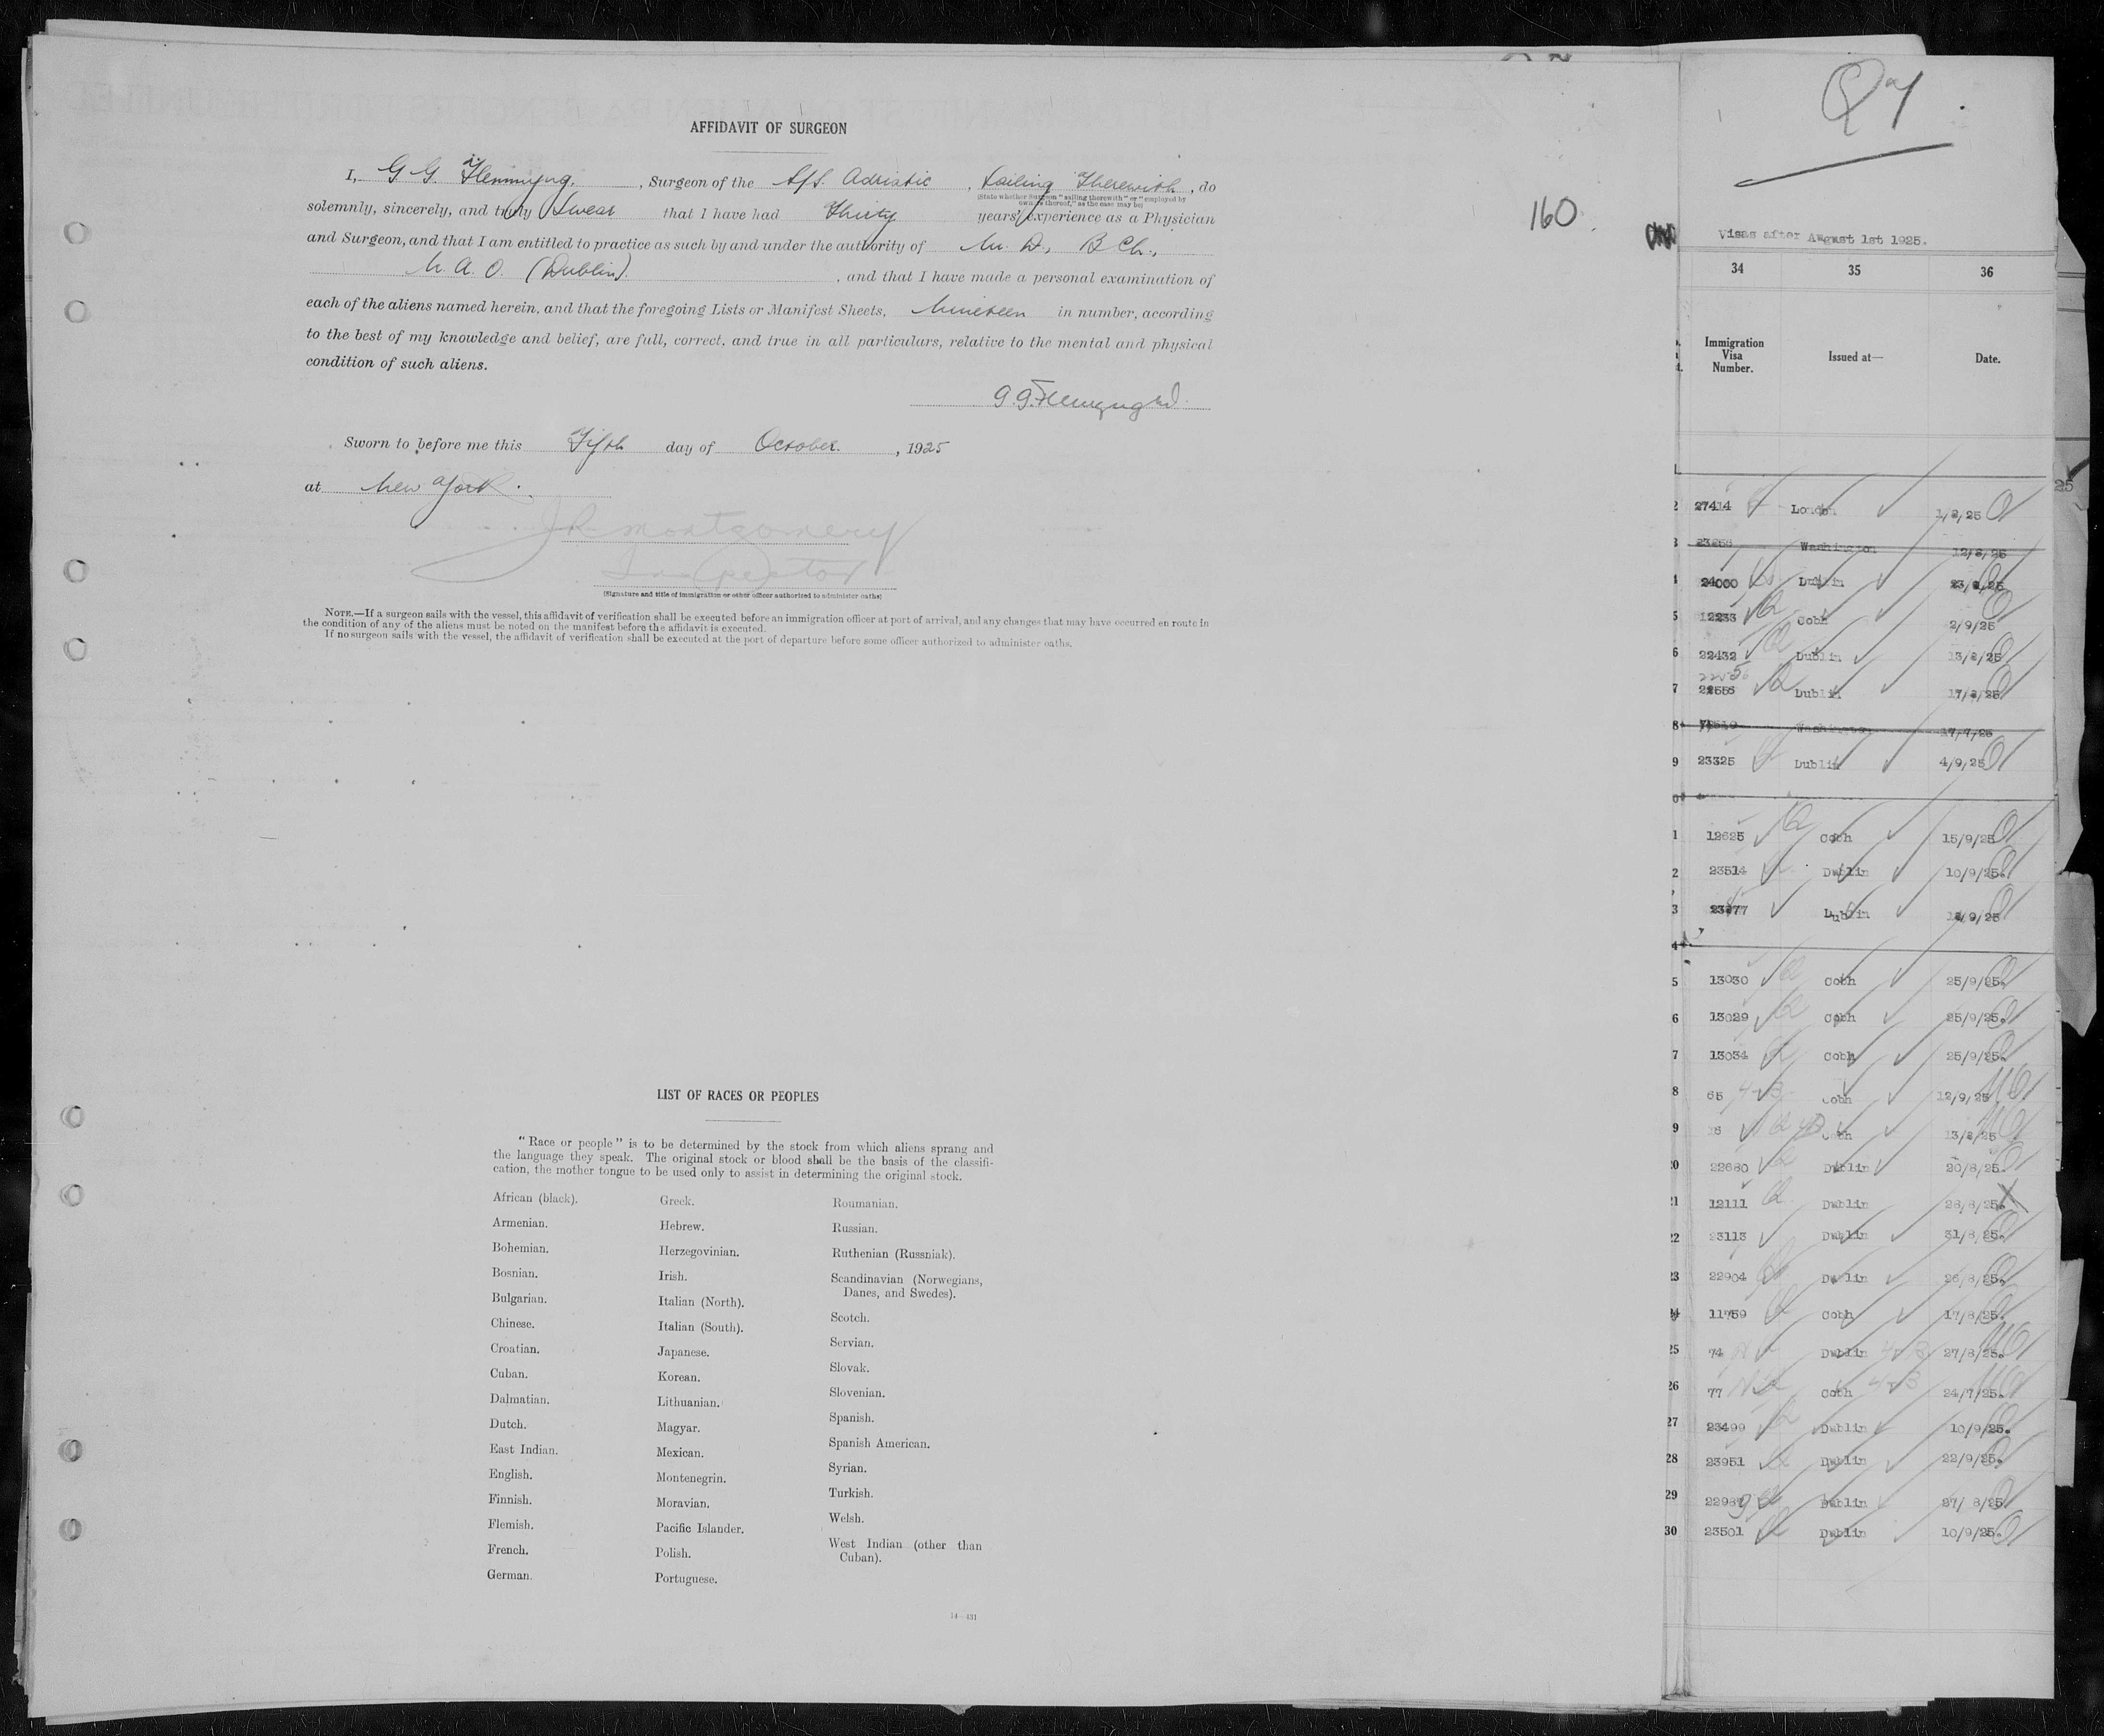 AFFIDAVIT OF SURGEON
I, G. G. Flemmyng, Surgeon of the S/S. Adriatic, Sailing Therewith, do
(State whether Surgeon "sailing therewith" or "employed by
owners thereof," as the case may be)
solemnly, sincerely, and truly Swear that I have had Thirty years' experience as a Physician
and Surgeon, and that I am entitled to practice as such by and under the authority of M. D., B Ch.,
M. A. O. (Dublin). , and that I have made a personal examination of
each of the aliens named herein, and that the foregoing Lists or Manifest Sheets, Nineteen in number, according
to the best of my knowledge and belief, are full, correct, and true in all particulars, relative to the mental and physical
condition of such aliens.
Sworn to before me this Fifth day of October. , 1925
at New York.
J R Montgomery
Inspector
(Signature and title of immigration or other officer authorized to administer oaths)
NOTE.—If a surgeon sails with the vessel, this affidavit of verification shall be executed before an immigration officer at port of arrival, and any changes that may have occurred en route in
the condition of any of the aliens must be noted on the manifest before the affidavit is executed.
If no surgeon sails with the vessel, the affidavit of verification shall be executed at the port of departure before some officer authorized to administer oaths.
160
LIST OF RACES OR PEOPLES
"Race or people" is to be determined by the stock from which aliens sprang and
the language they speak. The original stock or blood shall be the basis of the classifi-
cation, the mother tongue to be used only to assist in determining the original stock.
African (black).
Armenian.
Bohemian.
Bosnian.
Bulgarian.
Chinese.
Croatian.
Cuban.
Dalmatian.
Dutch.
East Indian.
English.
Finnish.
Flemish.
French.
German.
Greek.
Hebrew.
Herzegovinian.
Irish.
Italian (North).
Italian (South).
Japanese.
Korean.
Lithuanian.
Magyar.
Mexican.
Montenegrin.
Moravian.
Pacific Islander.
Polish.
Portuguese.
Roumanian.
Russian.
Ruthenian (Russniak).
Scandinavian (Norwegians,
Danes, and Swedes).
Scotch.
Servian.
Slovak.
Slovenian.
Spanish.
Spanish American.
Syrian.
Turkish.
Welsh.
West Indian (other than
Cuban).
Visas after August 1st 1925.
34 35 36
Immigration
Visa
Number.
Issued at—
Date.
2 27414 London
3 Washington
4 24000 Dublin
5 12233 Cobh 2/9/25
6 22432 Dublin 13/8/25
7 Dublin
8 Washington 17/7/25
9 23325 Dublin 4/9/25
1 12625 Cobh 15/9/25
2 23514 Dublin 10/9/25.
3 Dublin
5 13030 Cobh 25/9/25.
6 13029 Cobh 25/9/25.
7 13034 Cobh 25/9/25.
8 65 4-B Cobh 12/9/25
9 Cobh 13/8/25
20 22680 Dublin 20/8/25.
21 12111 Dublin 28/8/25.
22 23113 Dublin 31/8/25.
23 22904 Dublin 26/8/25.
24 11759 Cobh 17/8/25.
25 74 Dublin 27/8/25.
26 77 Cobh 24/7/25.
27 23499 Dublin 10/9/25.
28 23951 Dublin 22/9/25.
29 Dublin 27/8/25
30 23501 Dublin 10/9/25.